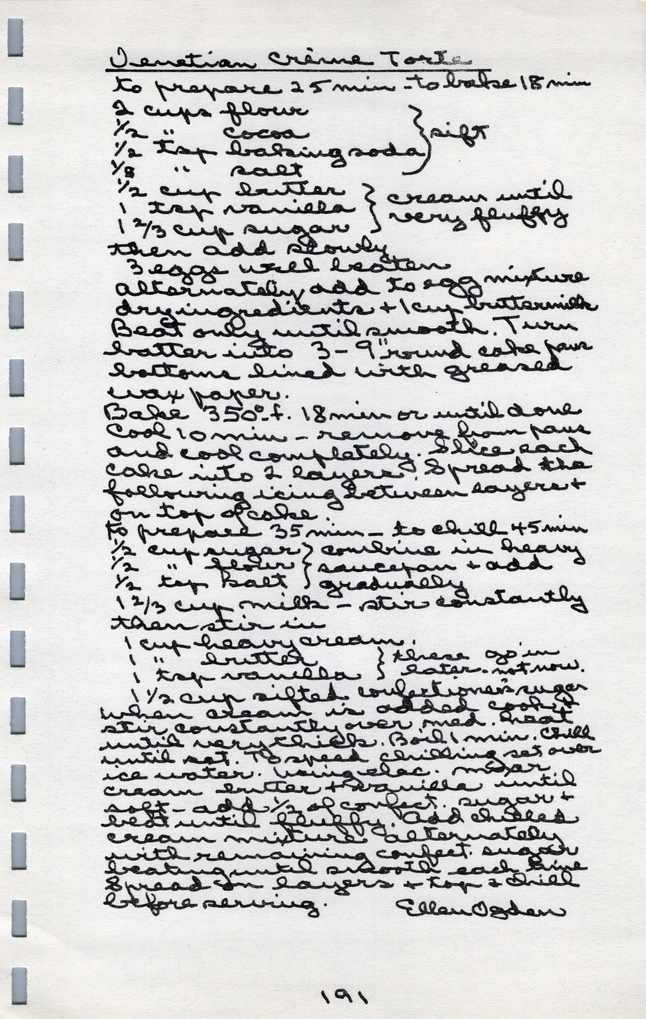 Venetian Crème Torte
to prepare 25 min - to bake 18 min
2 cups flour
1/2 " cocoa } sift
1/2 tsp baking soda
1/8 " salt
1/2 cup butter } cream until
1 tsp vanilla very fluffy
1 2/3 cup sugar
then add slowly
3 eggs well beaten
alternately add to egg mixture
dry ingredients + 1 cup buttermilk
Beat only until smooth. Turn
batter into 3 - 9" round cake pans
bottoms lined with greased
wax paper.
Bake 350° f. 18 min or until done
Cool 10 min - remove from pans
and cool completely. Slice each
cake into 2 layers. Spread the
following icing between layers +
on top of cake.
to prepare 35 min - to chill 45 min
1/2 cup sugar } combine in heavy
1/2 " flour saucepan + add
1/2 tsp salt gradually
1 2/3 cup milk - stir constantly
then stir in
1 cup heavy cream.
1 " butter } these go in
1 tsp vanilla later. not now.
1 1/2 cup sifted confectioner's sugar
when cream is added cook +
stir constantly over med. heat
until very thick. Boil 1 min. Chill
until set. To speed chilling set over
ice water. Using elec. mixer
cream butter + vanilla until
soft - add 1/2 of confect. sugar +
beat until fluffy. Add chilled
cream mixture alternately
with remaining confect. sugar
beating until smooth each time
Spread on layers + top + chill
before serving. Ellen Ogden
191